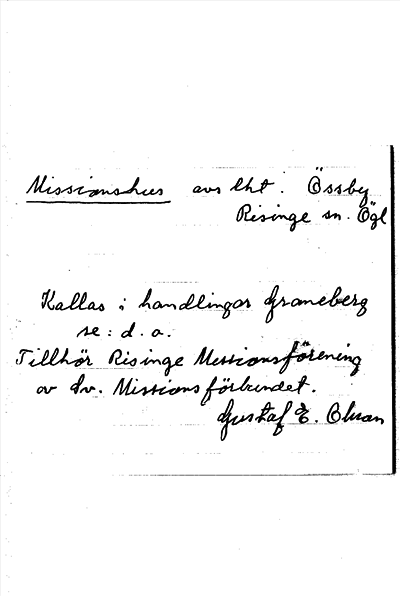 Missionshus avs lht. Össby
Risinge sn. Ögl
Kallas i handlingar Graneberg
se: d. o.
Tillhör Risinge Missionsförening
av Sv. Missionsförbundet.
Gustaf E. Olsson